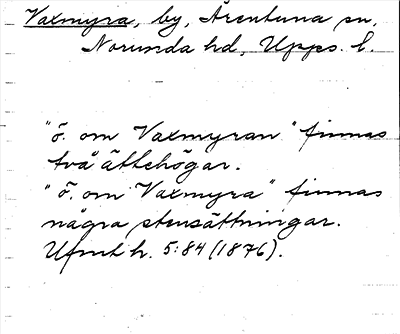 Vaxmyra, by, Ärentuna sn,
Norunda hd, Upps. l.
"ö. om Vaxmyran" finnas
två ättehögar.
"ö. om Vaxmyra" finnas
några stensättningar.
Ufmt h. 5:84 (1876).